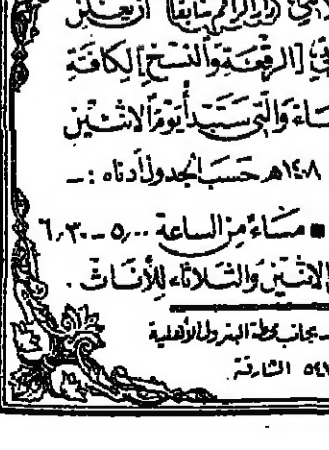 أن يعلن
في [الرقعة والنسخ] لكافة
ـساء والتي ستبدأ يوم الاثنين
١٤٠٨هـ حسب الجدول أدناه :ـ
■ مساءً من الساعة ٥٫٠٠ ـ ٦٫٣٠
الاثنين والثلاثاء للأناث .
ـ بجانب محطة البترول الأهلية
٥٤٧ الشارقة